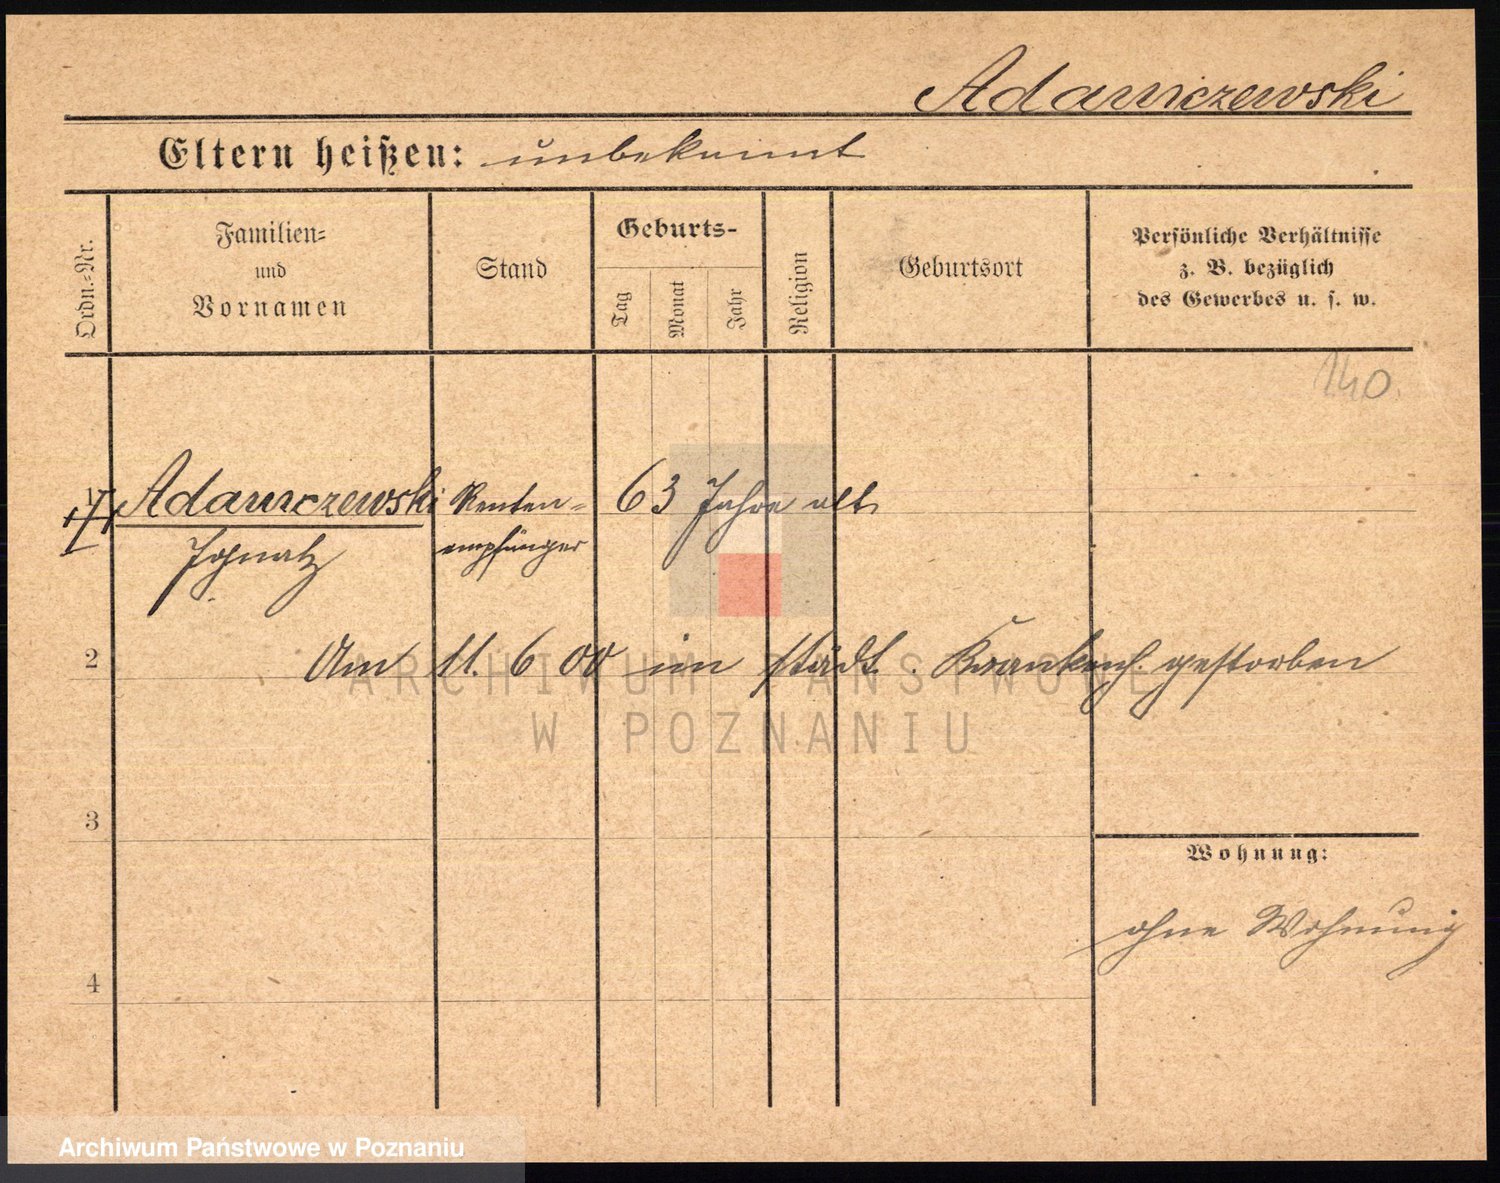 Adamczewski
Eltern heißen: unbekannt
Ordn.-Nr.
Familien-
und
Vornamen
Stand
Geburts-
Tag
Monat
Jahr
Religion
Geburtsort
Persönliche Verhältnisse
z. B. bezüglich
des Gewerbes u. s. w.
140.
1 Adamczewski Renten- 63 Jahre alt
Ignatz empfänger
2 Am 11. 6 00 im städt. Krankenh. gestorben
ARCHIWUM PAŃSTWOWE
W POZNANIU
3
Wohnung:
ohne Wohnung
4
Archiwum Państwowe w Poznaniu